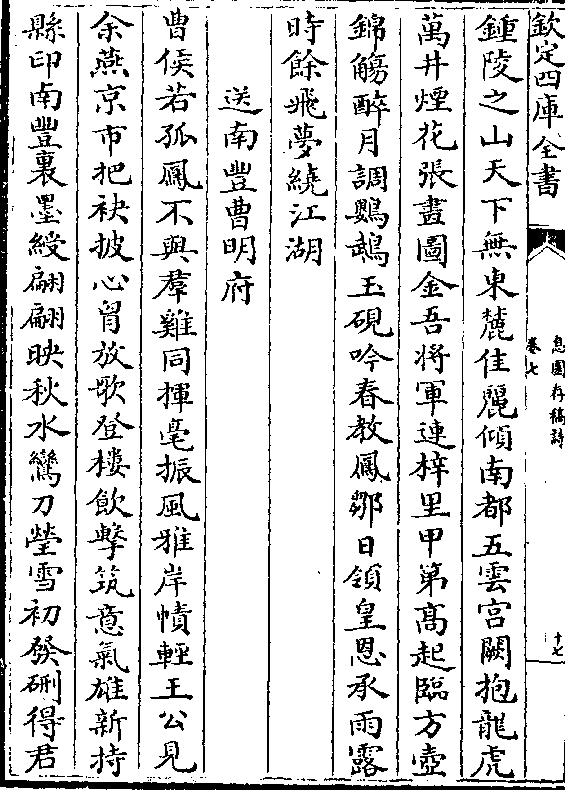 欽定四庫全書
息園存稿詩
卷七
十七
鍾陵之山天下無東麓佳麗傾南都五雲宫闕抱龍虎
萬井煙花張畫圖金吾將軍連梓里甲第髙起臨方壺
錦觴醉月調鸚鵡玉硯吟春教鳳鄒日領皇恩承雨露
時餘飛夢繞江湖
送南豐曹明府
曹侯若孤鳳不與羣雞同揮毫振風雅岸幘輕王公見
余燕京市把袂披心胷放歌登樓飲擊筑意氣雄新持
縣印南豐裏墨綬翩翩映秋水鸞刀瑩雪初發硎得君